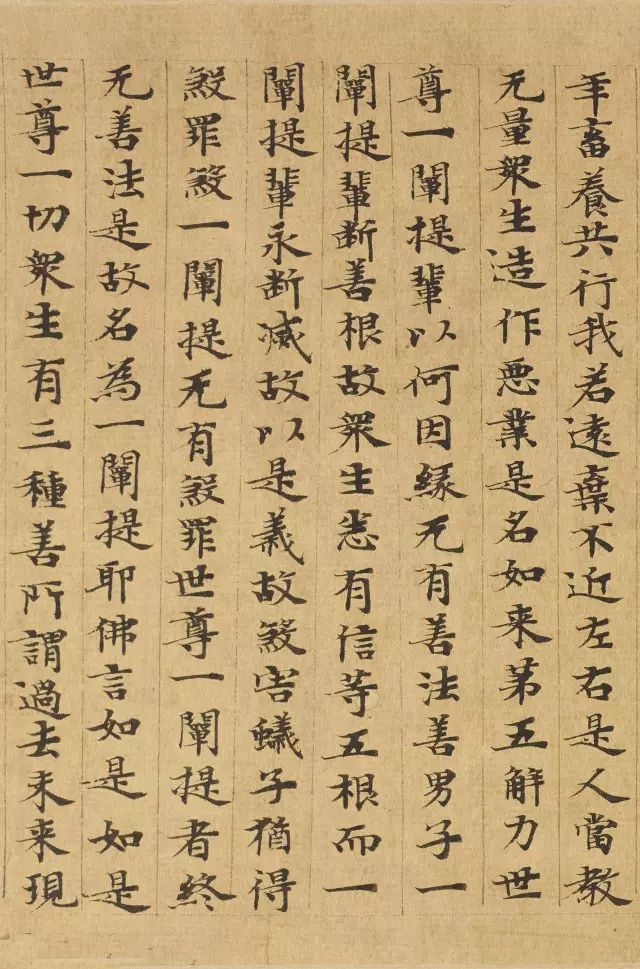 年畜養共行我若遠棄不近左右是人當教
无量衆生造作惡業是名如来第五解力世
尊一闡提輩以何因緣无有善法善男子一
闡提輩断善根故衆生悉有信等五根而一
闡提輩永断滅故以是義故煞害蟻子猶得
煞罪煞一闡提无有煞罪世尊一闡提者終
无善法是故名為一闡提耶佛言如是如是
世尊一切衆生有三種善所謂過去未来現